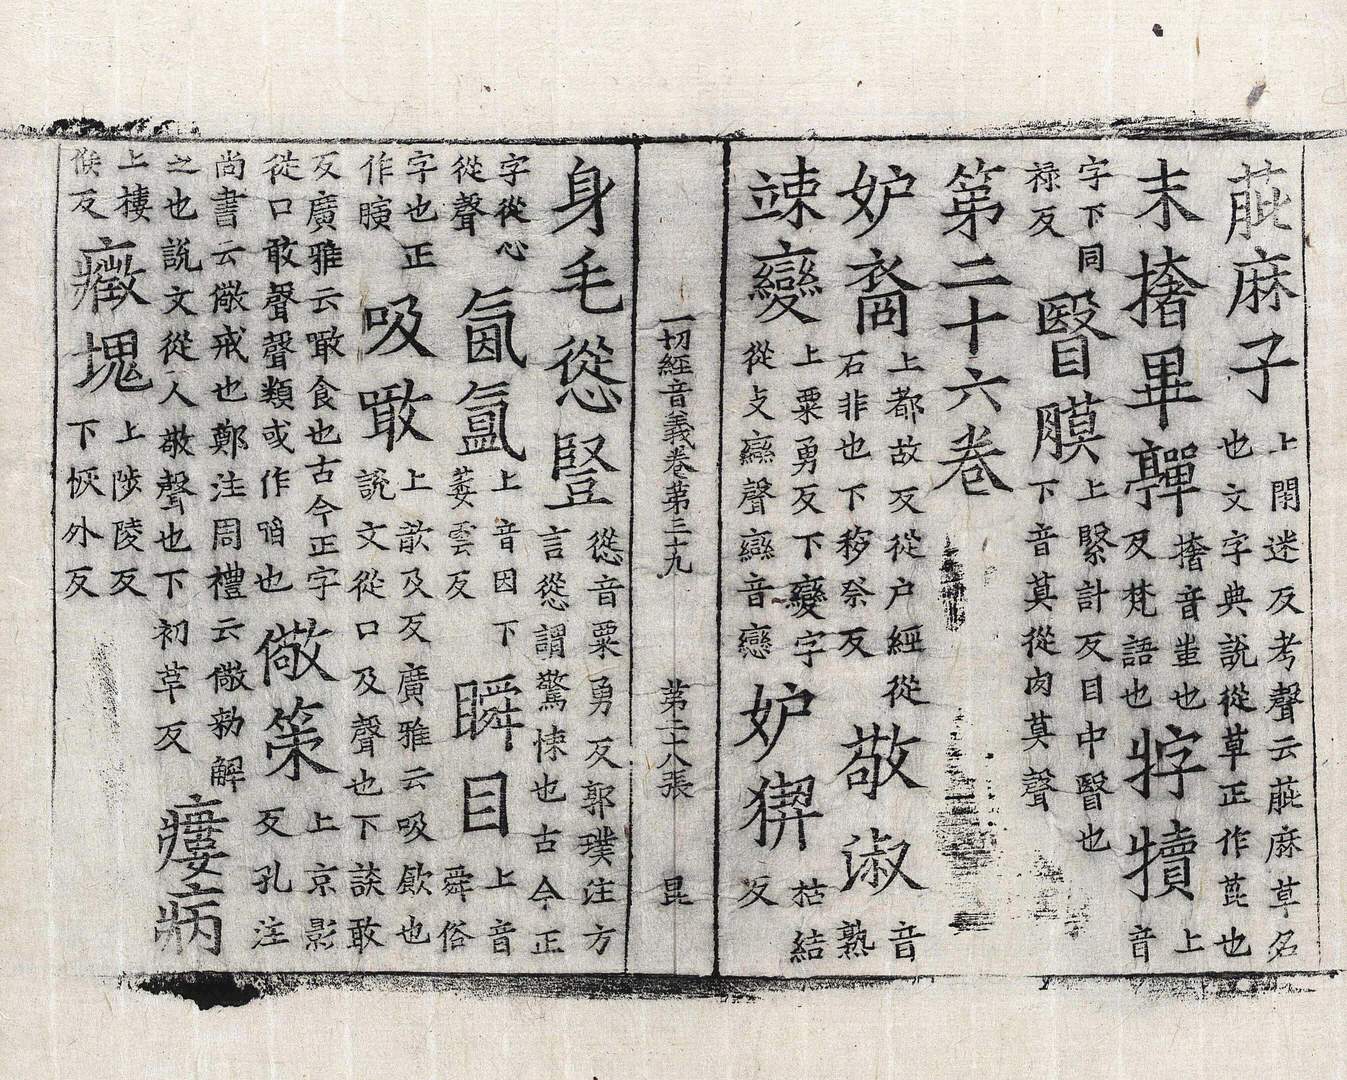 𦯀麻子上閉迷反考聲云𦯀麻草名也文字典說從草正作萞也
末撦畢亸撦音蚩也反梵語也牸犢上音
字下同祿反瞖膜上緊計反目中瞖也下音莫從肉莫聲
第二十六卷
妒裔上都故反從戶經從石非也下移祭反敬淑音熟
竦變上粟勇反下變字從攴䜌聲䜌音戀妒猰枯結反
一切經音義卷第三十九 第二大張 昆
身毛慫豎慫音粟勇反郭璞注方言慫謂驚悚也古今正
字從心從聲氤氳上音因下蒕雲反瞬目上音舜俗
字也正作瞚吸噉上歆及反廣雅云吸飲也說文從口及聲也下談敢
反廣雅云噉食也古今正字從口敢聲聲類或作啗也儆策上京影反孔注
尚書云儆戒也鄭注周禮云儆勑解之也說文從人敬聲也下初草反瘻病
上樓候反癥塊上陟陵反下恢外反